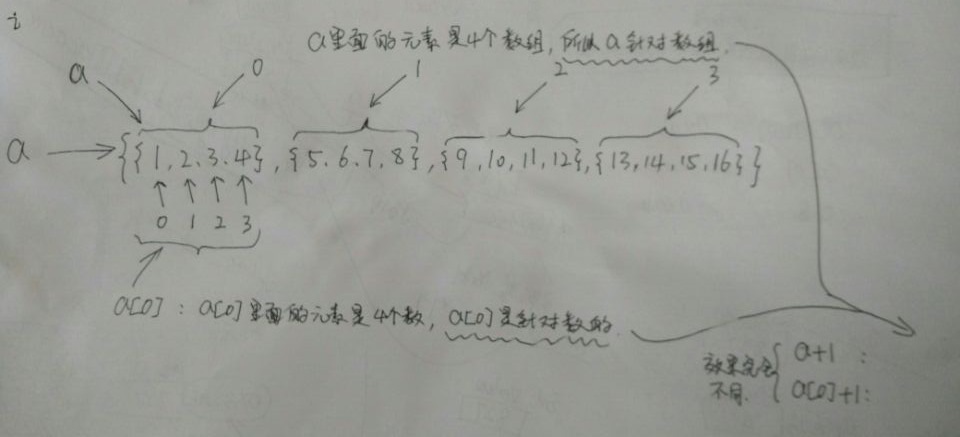 i
a里面的元素是4个数组,所以a针对数组.
a 0 1 2 3
a {{1,2,3,4},{5,6,7,8},{9,10,11,12},{13,14,15,16}}
0 1 2 3
a[0]:a[0]里面的元素是4个数,a[0]是针对数的.
效果完全 a+1 :
不同. a[0]+1: